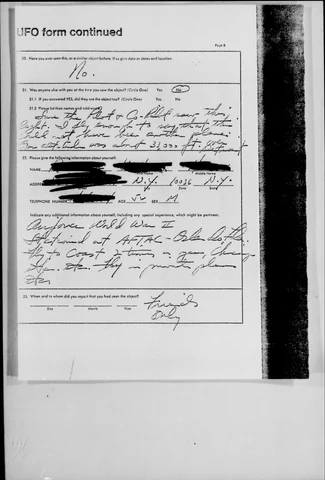 UFO form continued
Page 8
20. Have you ever seen this, or a similar object before. If so give date or dates and location.
No.
21. Was anyone else with you at the time you saw the object? (Circle One) Yes No
21.1 If you answered YES, did they see the object too? (Circle One) Yes No
21.2 Please list their names and addresses:
Sure the Pilot & Co-Pilot saw the
light, I
not have been another plane.
Our altitude was about 31,000 ft.
22. Please give the following information about yourself:
NAME First Name Middle Name
ADDRESS N.Y. 10036 N.Y.
City Zone State
TELEPHONE NUMBER AGE 56 SEX M
Indicate any additional information about yourself, including any special experience, which might be pertinent.
Air force World War II
Stationed at AFTAC - Orlando Fla.
fly to Coast 2 times a year, Chicago
etc. etc. fly in private planes
etc.
23. When and to whom did you report that you had seen the object?
Friends
Only
Day Month Year